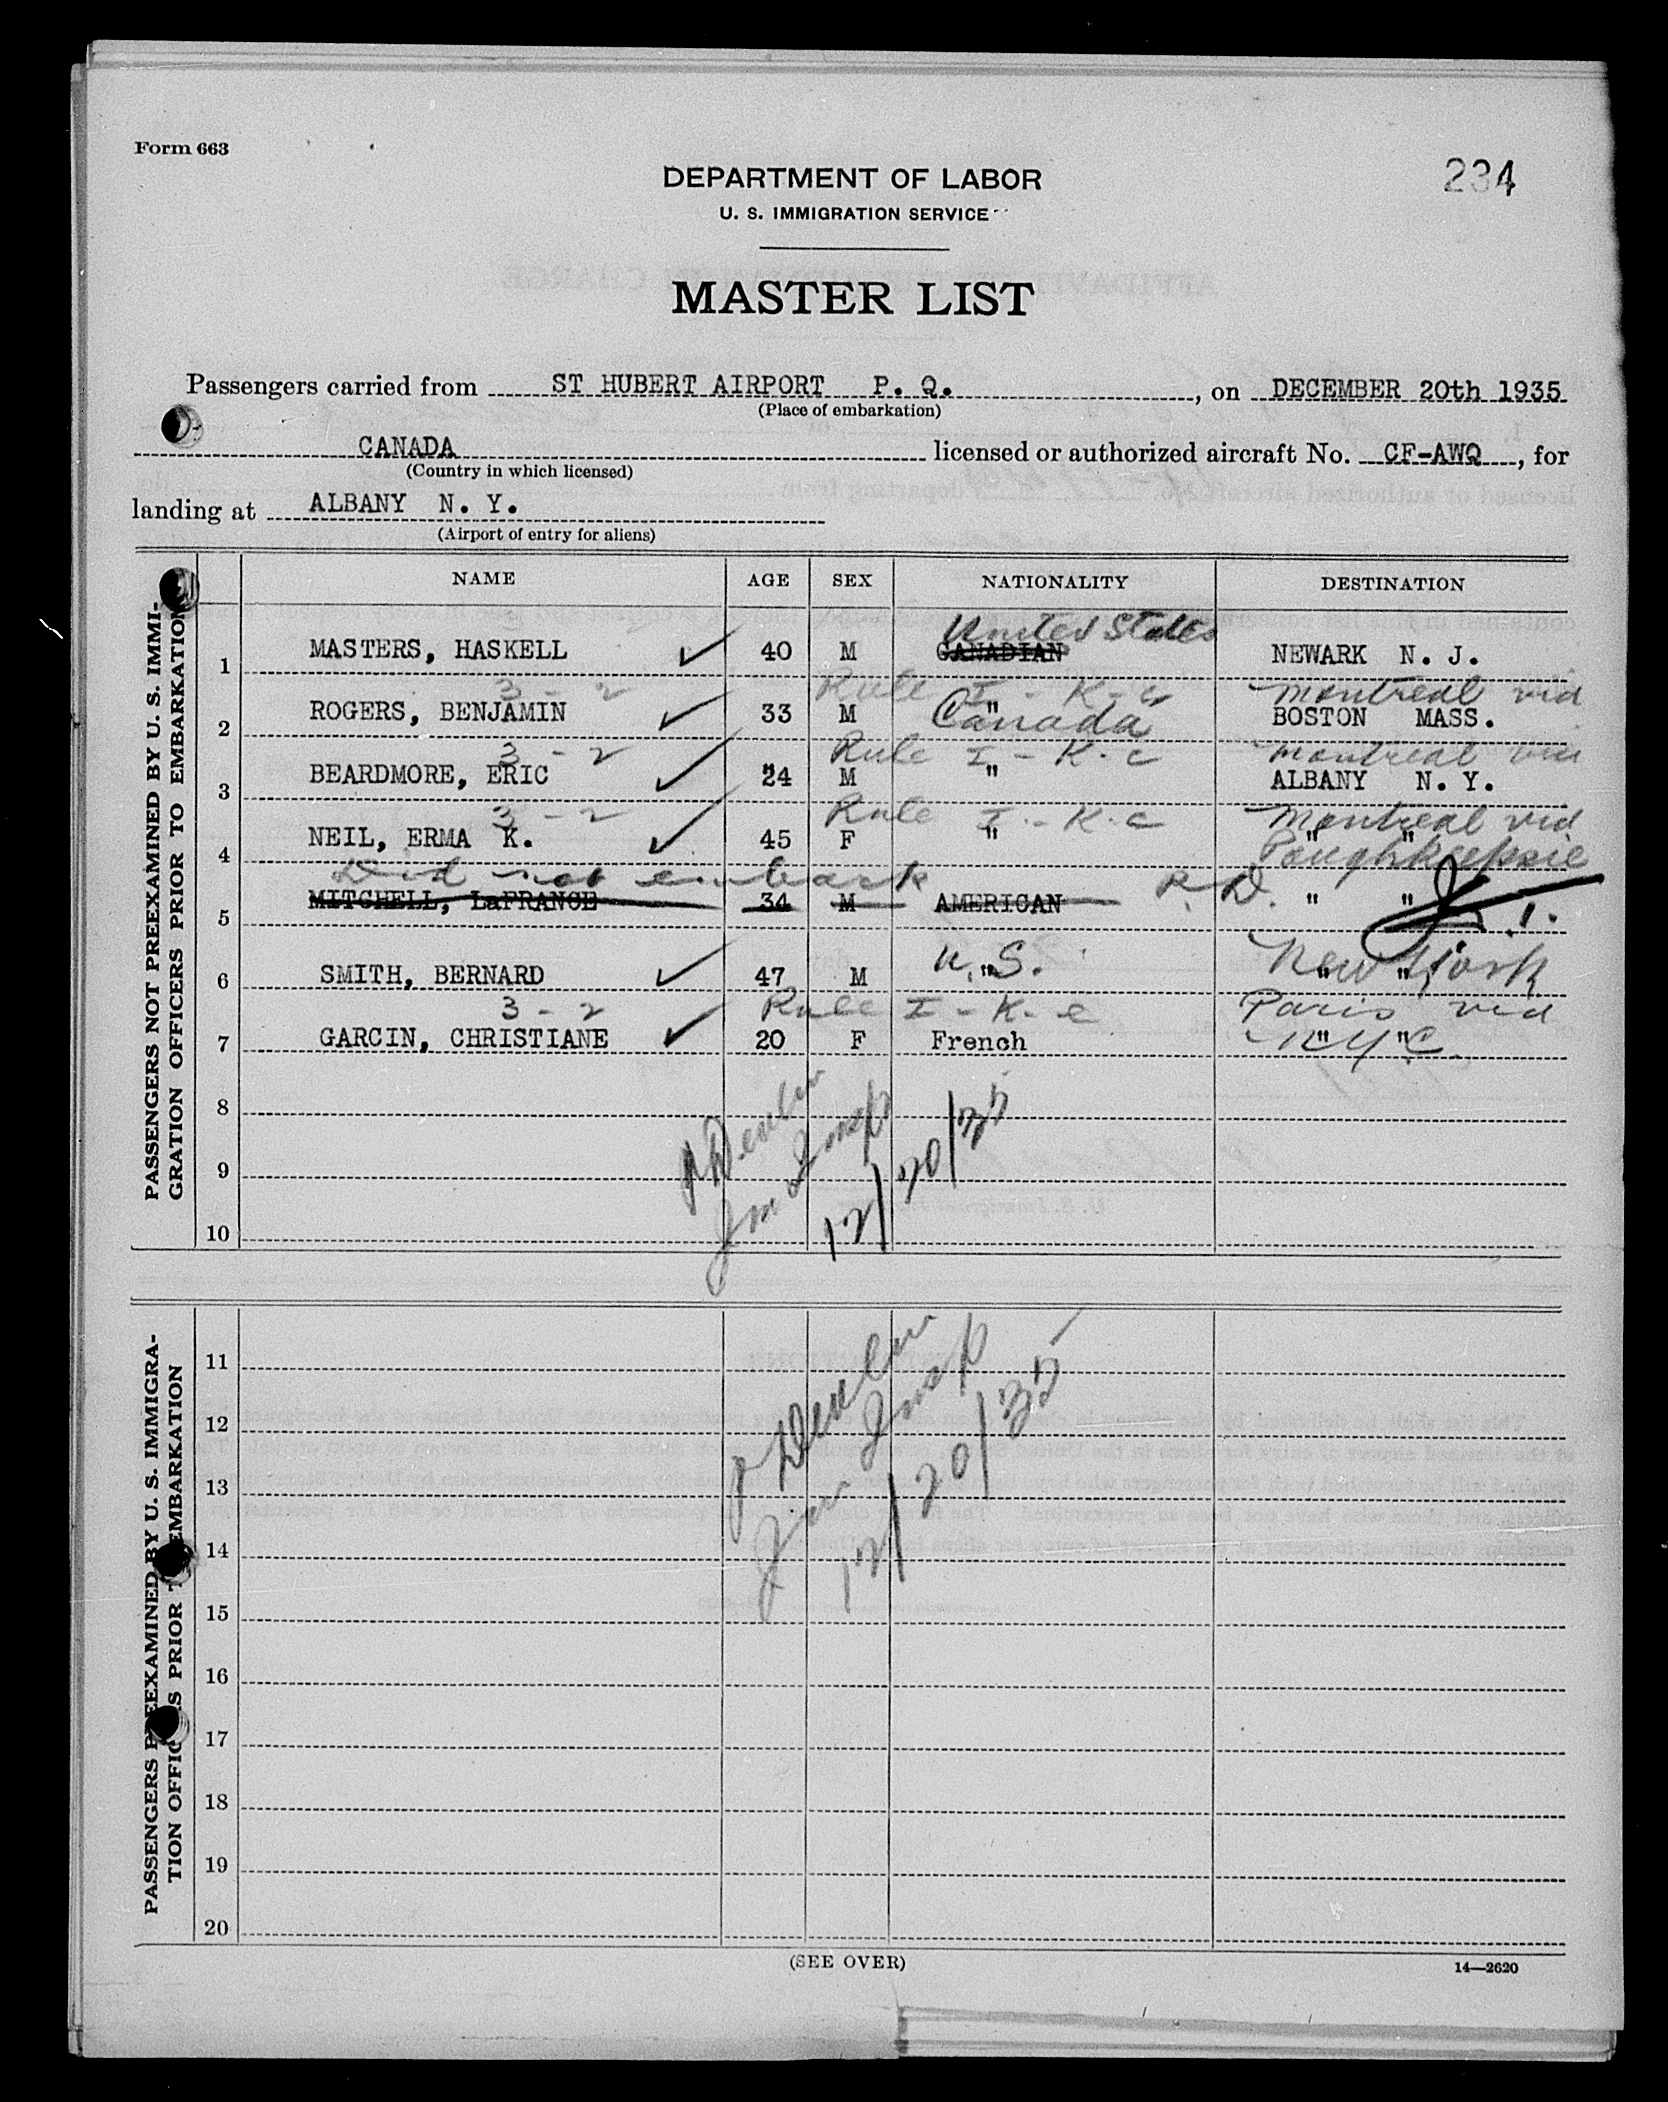 Form 663
234
DEPARTMENT OF LABOR
U. S. IMMIGRATION SERVICE
MASTER LIST
Passengers carried from ST HUBERT AIRPORT P. Q. , on DECEMBER 20th 1935
(Place of embarkation)
CANADA licensed or authorized aircraft No. CF-AWQ , for
(Country in which licensed)
landing at ALBANY N. Y.
(Airport of entry for aliens)
PASSENGERS NOT PREEXAMINED BY U. S. IMMI-
GRATION OFFICERS PRIOR TO EMBARKATION
NAME AGE SEX NATIONALITY DESTINATION
United States
1 MASTERS, HASKELL 40 M CANADIAN NEWARK N. J.
3 - 2 Rule I - K - c Montreal via
2 ROGERS, BENJAMIN 33 M " Canada BOSTON MASS.
3 - 2 Rule I - K - c Montreal via
3 BEARDMORE, ERIC 24 M " ALBANY N. Y.
3 - 2 Rule I - K - c Montreal via
4 NEIL, ERMA K. 45 F " " "
Poughkeepsie
Did not embark R. D.
5 MITCHELL, LaFRANCE 34 M AMERICAN " "
6 SMITH, BERNARD 47 M " U. S. " " New York
3 - 2 Rule I - K - c Paris via
7 GARCIN, CHRISTIANE 20 F French " " N Y C.
8
9
10
Imm Insp
12/20/35
PASSENGERS PREEXAMINED BY U. S. IMMIGRA-
TION OFFICERS PRIOR TO EMBARKATION
11
12
13
14
15
16
17
18
19
20
Imm Insp
12/20/35
(SEE OVER)
14—2620